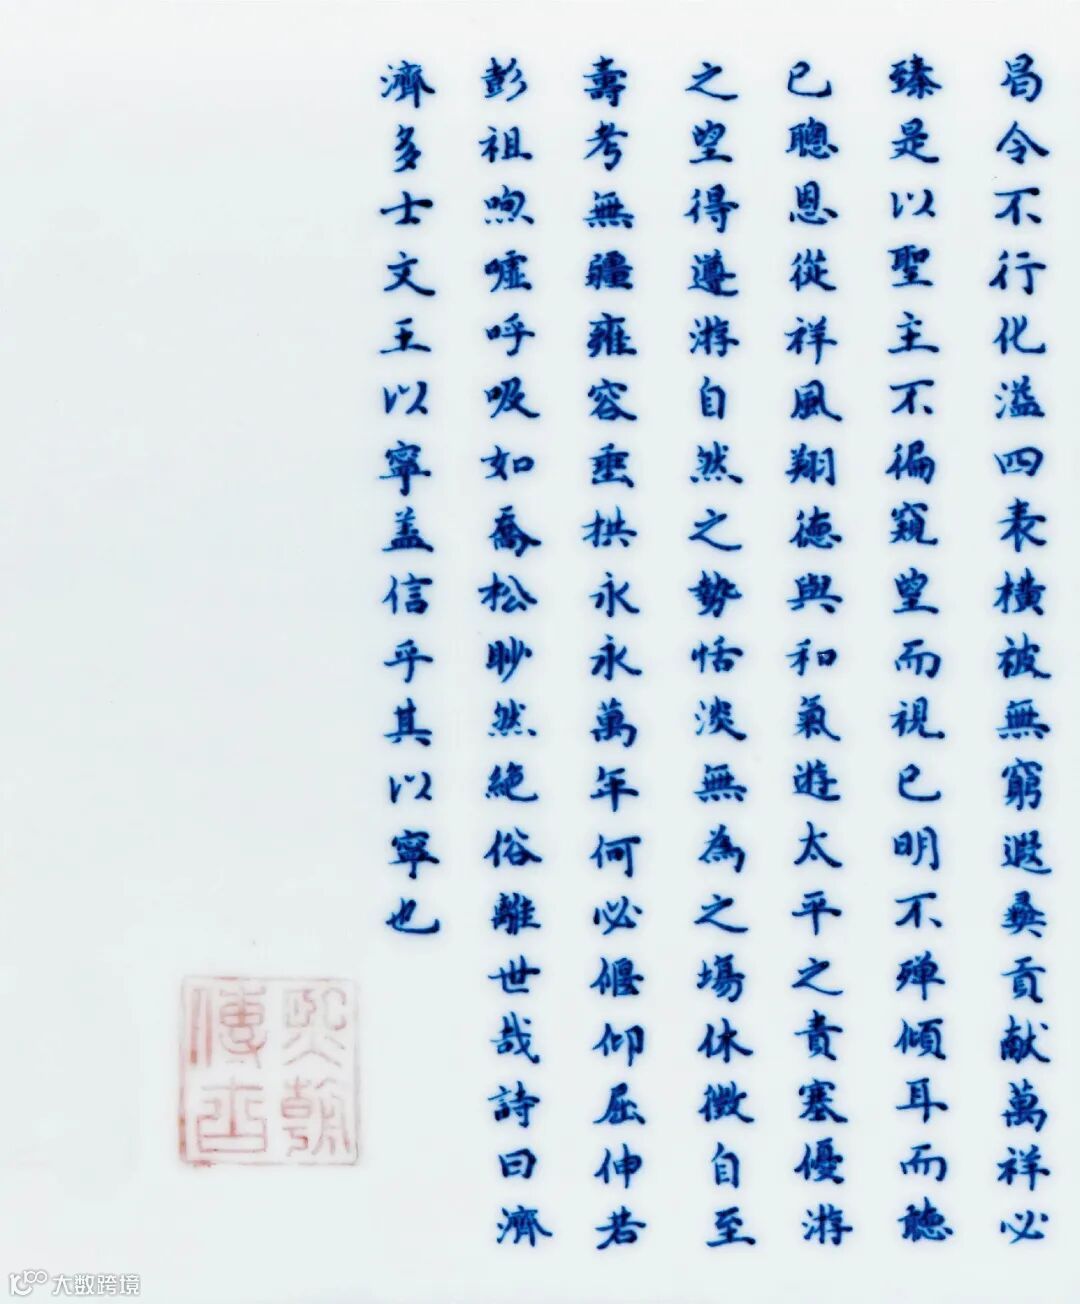 曷令不行化溢四表橫被無窮遐彝貢献萬祥必
臻是以聖主不徧窺望而視已明不殫傾耳而聽
已聰恩從祥風翔德與和氣遊太平之責塞優游
之望得遵游自然之勢恬淡無為之場休徵自至
壽考無疆雍容垂拱永永萬年何必偃仰屈伸若
彭祖喣噓呼吸如喬松眇然絶俗離世哉詩曰濟
濟多士文王以寧盖信乎其以寧也
熙朝
傳古
大数跨境